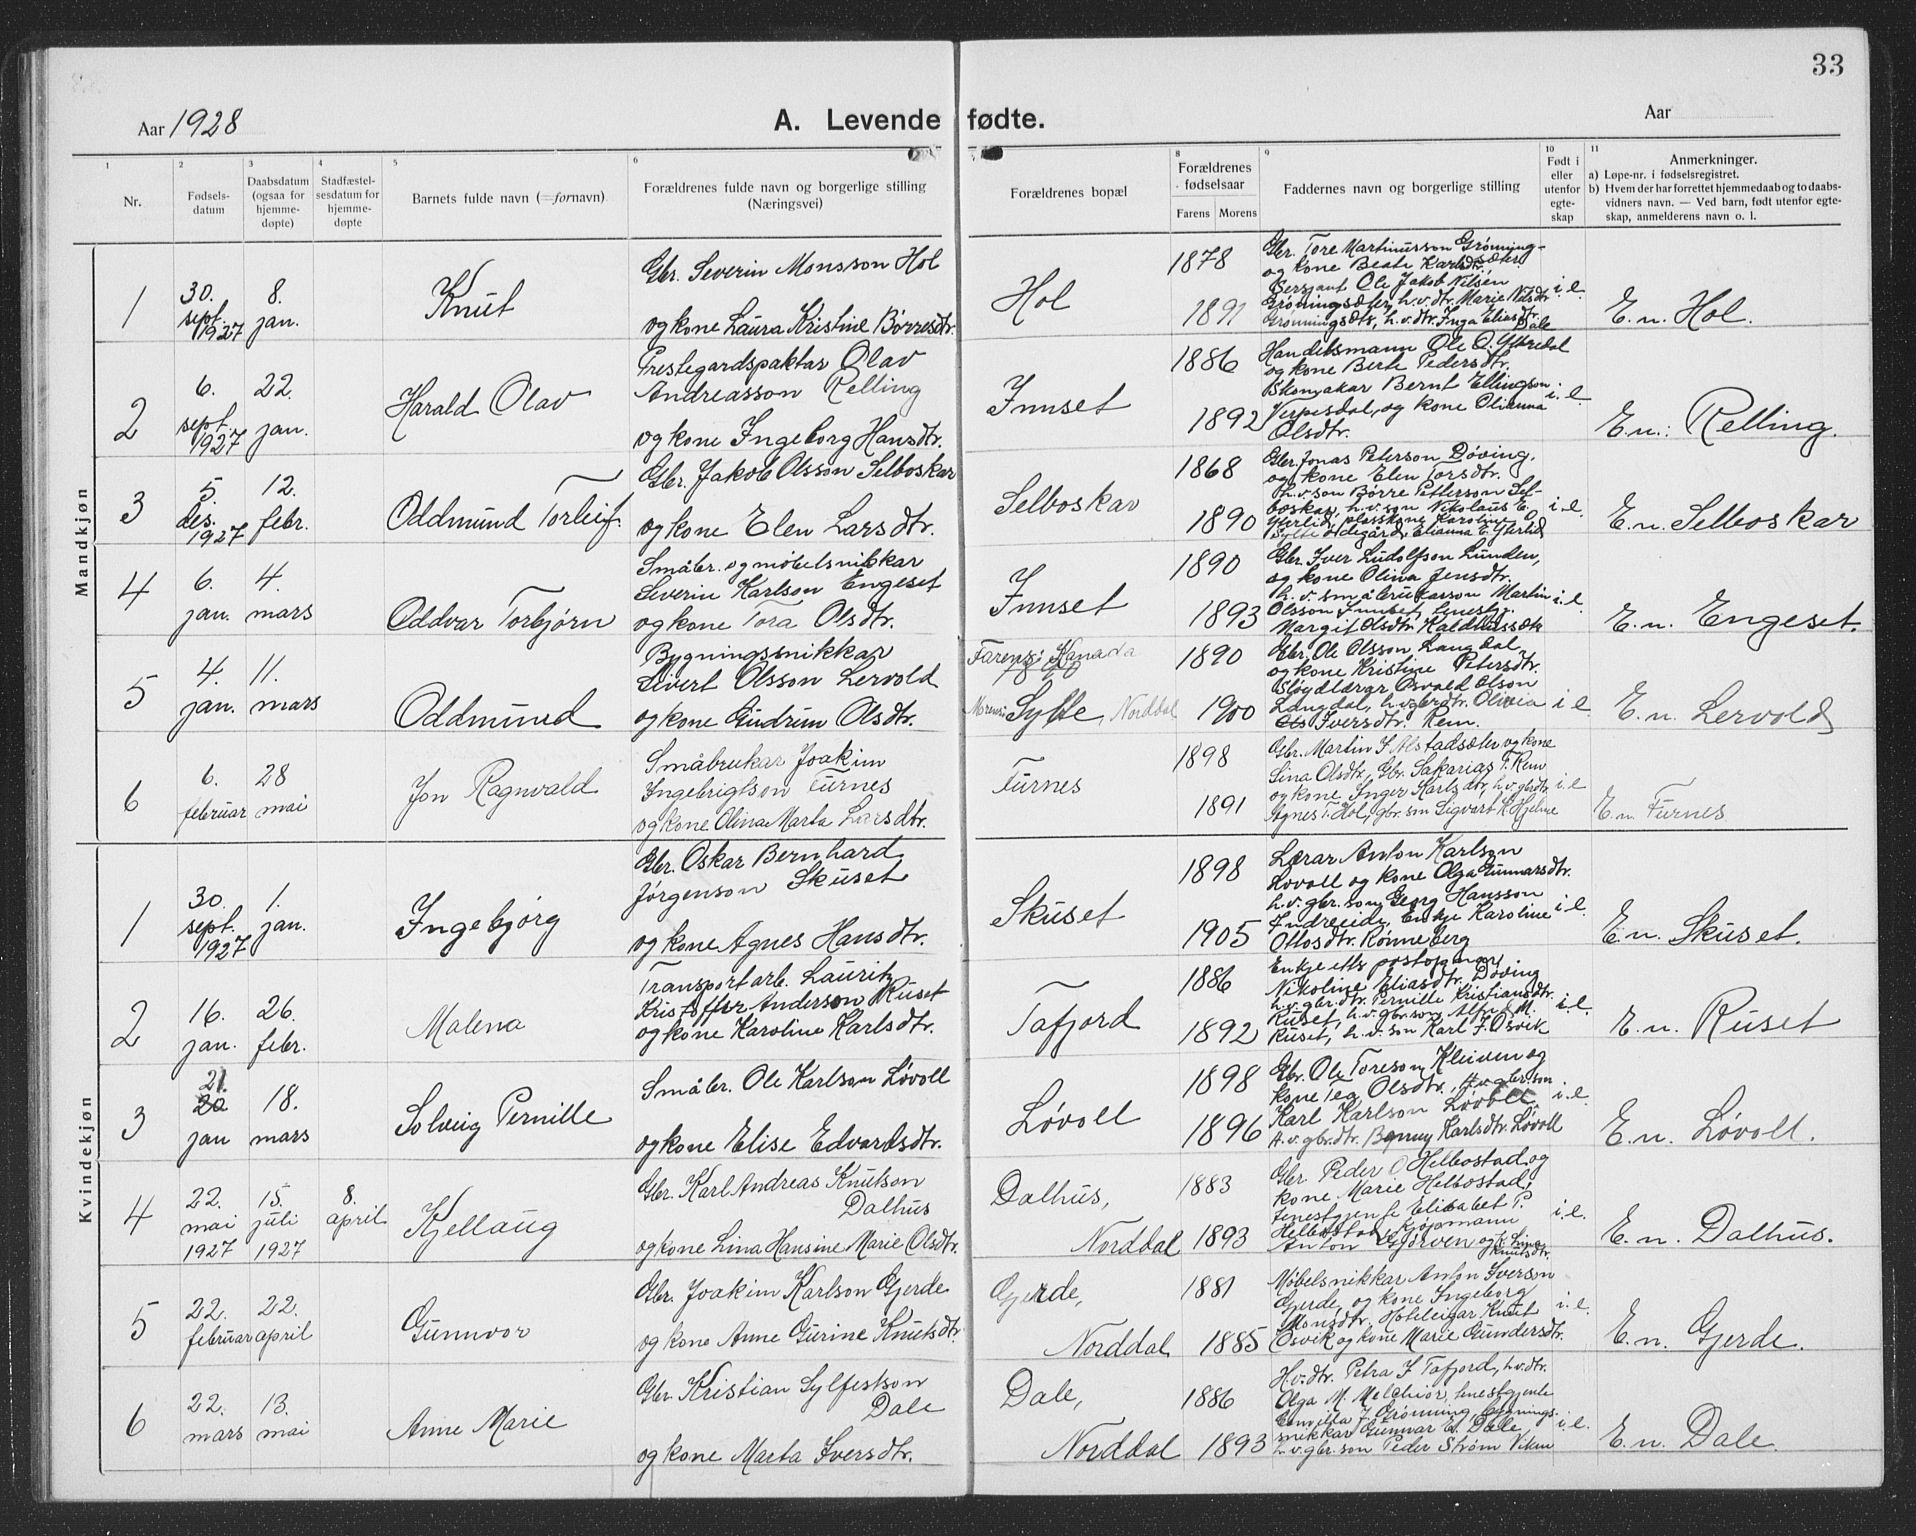 33
Aar 1928
A. Levende fødte.
Aar
1 2 3 4 5 6 8 9 10 11
Nr.
Fødsels-
datum
Daabsdatum
(ogsaa for
hjemme-
døpte)
Stadfæstel-
sesdatum for
hjemme-
døpte
Barnets fulde navn (=fornavn)
Forældrenes fulde navn og borgerlige stilling
(Næringsvei)
Forældrenes bopæl
Forældrenes
fødselsaar
Farens Morens
Faddernes navn og borgerlige stilling
Født i
eller
utenfor
egte-
skap
Anmerkninger.
a) Løpe-nr. i fødselsregistret.
b) Hvem der har forrettet hjemmedaab og to daabs-
vidners navn. — Ved barn, født utenfor egte-
skap, anmelderens navn o. l.
Mandkjøn
1
30.
sept.
1927
8.
jan.
Knut
Gbr. Severin Monsson Hol
og kone Laura Kristine Børresdtr.
Hol
1878
1891
Gbr. Tore Martinusson Grønning-
sæter
og kone Beate Karlsdtr.
Bersjant Ole Jakob Nilsen
Grønningsæter, h.v.dtr. Marie Nilsdtr
Grønningsæter, h.v.dtr. Inga Eliasdtr.
Dale
i.e.
E.n. Hol.
2
6.
sept.
1927
22.
jan.
Harald Olav
Prestegardspaktar Olav
Andreasson Relling
og kone Ingeborg Hansdtr.
Innset
1886
1892
Handelsmann Ole O. Ytredal
og kone Berte Pedersdtr.
Skomakar Bernt Ellingson
Verpesdal, og kone Olianna
Olsdtr.
i.e.
E.n.: Relling.
3
5.
des.
1927
12.
febr.
Oddmund Torleif
Gbr. Jakob Olsson Selboskar
og kone Elen Larsdtr.
Selboskar
1868
1890
Gbr. Jonas Peterson Døving,
og kone Elen Torsdtr.
h.v. son Børre Petterson Sel-
boskar, h.v. son Nikolaus E.
Ytterli, plasskone Karoline O.
Sylte Ødegård, Elianna E. Ytterli
i.e.
E.n. Selboskar
4
6.
jan.
4.
mars
Oddvar Torbjørn
Småbr. og møbelsnikkar
Severin Karlson Engeset
og kone Tora Olsdtr.
Innset
1890
1893
Gbr. Iver Ludolfson Lunden,
og kone Olina Jensdtr.
h.v. småbrukarson Martin
Olsson Innset, tenestgj.
Margit Olsdtr. Kaldhussæter
i.e.
E.n. Engeset.
5
4.
jan.
11.
mars
Oddmund
Bygningssnikkar
Sivert Olsson Lervold
og kone Gudrun Olsdtr.
Farens: Kanada
1890
Morens: Sylte, Norddal
1890
1900
Gbr. Ole Olsson Langdal,
og kone Kristine Petersdtr.
Sløydlærar Osvald Olson
Langdal, h.v.gbrdtr. Olivia
Iversdtr. Rem.
i.e.
E.n. Lervold
6
6.
februar
28
mai
Jon Ragnvald
Småbrukar Joakim
Ingebrigtson Furnes
og kone Olina Marta Larsdtr.
Furnes
1898
1891
Gbr. Martin J. Alstadsæter og kone
Lina Olsdtr, Gbr. Sakarias T. Rem
og kone Inger Karlsdtr, h.v. gbrdtr.
Agnes T. Hol, gbr. son Sigvart K Hjelme
i.e.
E.n. Furnes
Kvindekjøn
1
30.
sept.
1927
1.
jan.
Ingebjørg
Gbr. Oskar Bernhard
Jørgenson Skuset
og kone Agnes Hansdtr.
Skuset
1898
1905
Lærar Anton Karlson
Løvoll og kone Olga Gunnarsdtr.
h.v. gbr. son Georg Hansson
Indreeide, Enkje Karoline
Ottosdtr. Rønneberg
i.e.
E.n. Skuset.
2
16.
jan.
26.
febr.
Malena
Transportarb. Lauritz
Kristoffer Anderson Ruset
og kone Karoline Karlsdtr.
Tafjord
1886
1892
Enkje etter postopnar
Nikoline Eliasdtr. Døving
h.v. gbr.dtr. Pernille Kristiansdtr.
Ruset, h.v. gbr.son Alfred M.
Ruset, h.v. son Karl J. Osvik
i.e.
E.n. Ruset
3
21.
20
jan
18.
mars
Solveig Pernille
Småbr. Ole Karlson Løvoll
og kone Elise Edvardsdtr.
Løvoll
1898
1896
Gbr. Ole Toreson Kleiven og
kone Tea Olsdtr., h.v. gbr.son
Karl Karlson Løvoll
h.v. gbr.dtr. Benny Karlsdtr. Løvoll
i.e.
E.n. Løvoll.
4
22.
mai
1927
15.
juli
1927
8.
april
Kjellaug
Gbr. Karl Andreas Knutson
Dalhus
og kone Lina Hansine Marie Olsdtr.
Dalhus,
Norddal
1883
1893
Gbr Peder O Helbostad og
kone Marie Helbostad,
tenestgjente Elisabet P.
Helbostad, Kjøpmann
Anton Gjørven og k. Lina
Knutsdtr.
i.e.
E.n. Dalhus.
5
22.
februar
22.
april
Gunnvor
Gbr. Joakim Karlson Gjerde
og kone Anne Gurine Knutsdtr.
Gjerde,
Norddal
1881
1885
Møbelsnikkar Anton Iverson
Gjerde, og kone Ingeborg
Monsdtr, Hoteleigar Knut
Osvik og kone Marie Gundersdtr.
i.e.
E.n. Gjerde.
6
22.
mars
13.
mai
Anne Marie
Gbr. Kristian Sylfestson
Dale
og kone Marta Iversdtr.
Dale,
Norddal
1886
1893
H.v.dtr. Petra J Tafjord, h.v.dtr.
Olga M. Melchior, tenestgjente
J. Grønning, bygnings-
snikkar Gunnar E. Dale,
h.v. gbr. son Peder Strøm Viken
i.e.
E.n. Dale